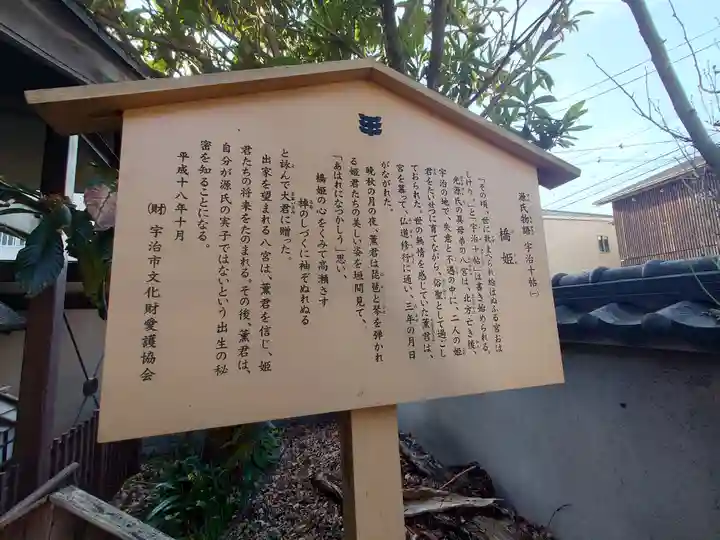 源氏物語 宇治十帖㈠
橋姫
「その頃、世に数まへられ給はぬふる宮おは
しけり。」と『宇治十帖』は書き始められる。
光源氏の異母弟の八宮は、北方亡き後、
宇治の地で、失意と不遇の中に、二人の姫
君をたいせつに育てながら、俗聖として過ごし
ておられた。世の無情を感じていた薫君は、
宮を慕って、仏道修行に通い、三年の月日
がながれた。
晩秋の月の夜、薫君は琵琶と琴を弾かれ
る姫君たちの美しい姿を垣間見て、
「あはれになつかしう」思い、
橋姫の心をくみて高瀬さす
棹のしづくに袖ぞぬれぬる
と詠んで大君に贈った。
出家を望まれる八宮は、薫君を信じ、姫
君たちの将来をたのまれる。その後、薫君は、
自分が源氏の実子ではないという出生の秘
密を知ることになる。
平成十八年十月
(財) 宇治市文化財愛護協会